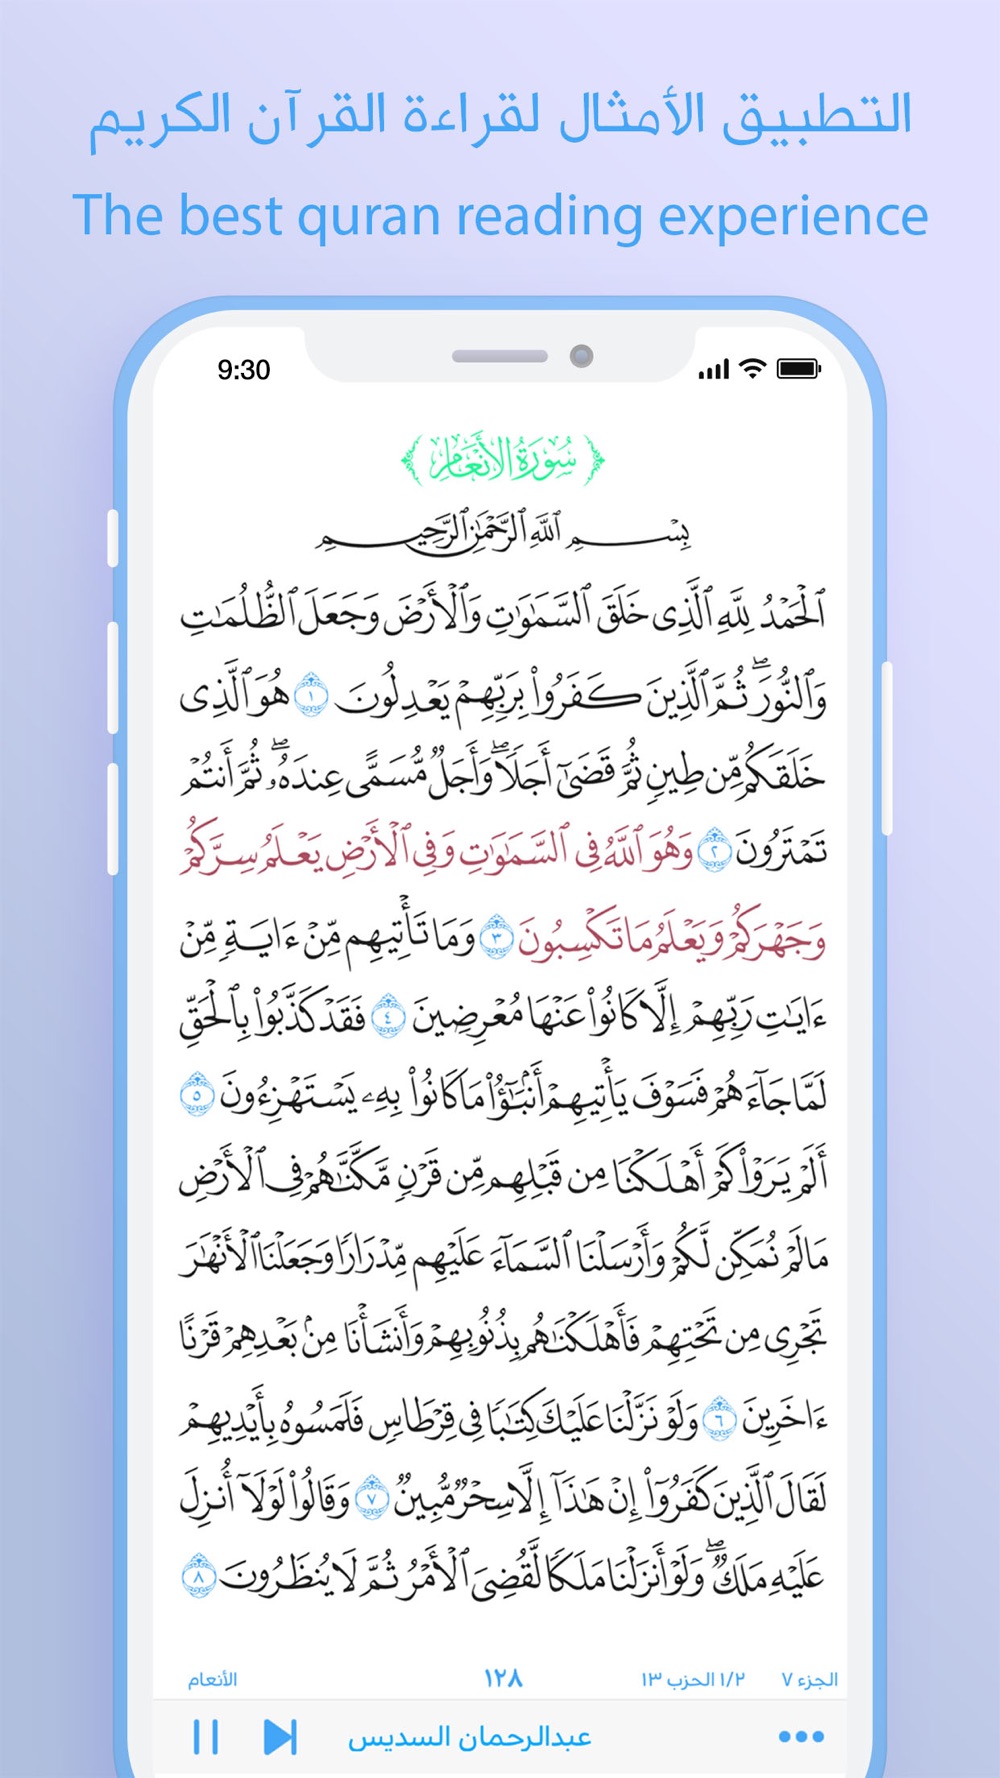 التطبيق الأمثال لقراءة القرآن الكريم
The best quran reading experience
9:30
سُورَةُ الأَنْعَامِ
بِسْمِ ٱللَّهِ ٱلرَّحْمَٰنِ ٱلرَّحِيمِ
ٱلْحَمْدُ لِلَّهِ ٱلَّذِى خَلَقَ ٱلسَّمَٰوَٰتِ وَٱلْأَرْضَ وَجَعَلَ ٱلظُّلُمَٰتِ
وَٱلنُّورَۖ ثُمَّ ٱلَّذِينَ كَفَرُوا۟ بِرَبِّهِمْ يَعْدِلُونَ ١ هُوَ ٱلَّذِى
خَلَقَكُم مِّن طِينٍ ثُمَّ قَضَىٰٓ أَجَلًاۖ وَأَجَلٌ مُّسَمًّى عِندَهُۥۖ ثُمَّ أَنتُمْ
تَمْتَرُونَ ٢ وَهُوَ ٱللَّهُ فِى ٱلسَّمَٰوَٰتِ وَفِى ٱلْأَرْضِ يَعْلَمُ سِرَّكُمْ
وَجَهْرَكُمْ وَيَعْلَمُ مَا تَكْسِبُونَ ٣ وَمَا تَأْتِيهِم مِّنْ ءَايَةٍ مِّنْ
ءَايَٰتِ رَبِّهِمْ إِلَّا كَانُوا۟ عَنْهَا مُعْرِضِينَ ٤ فَقَدْ كَذَّبُوا۟ بِٱلْحَقِّ
لَمَّا جَآءَهُمْ فَسَوْفَ يَأْتِيهِمْ أَنۢبَٰٓؤُا۟ مَا كَانُوا۟ بِهِۦ يَسْتَهْزِءُونَ ٥
أَلَمْ يَرَوْا۟ كَمْ أَهْلَكْنَا مِن قَبْلِهِم مِّن قَرْنٍ مَّكَّنَّٰهُمْ فِى ٱلْأَرْضِ
مَا لَمْ نُمَكِّن لَّكُمْ وَأَرْسَلْنَا ٱلسَّمَآءَ عَلَيْهِم مِّدْرَارًا وَجَعَلْنَا ٱلْأَنْهَٰرَ
تَجْرِى مِن تَحْتِهِمْ فَأَهْلَكْنَٰهُم بِذُنُوبِهِمْ وَأَنشَأْنَا مِنۢ بَعْدِهِمْ قَرْنًا
ءَاخَرِينَ ٦ وَلَوْ نَزَّلْنَا عَلَيْكَ كِتَٰبًا فِى قِرْطَاسٍ فَلَمَسُوهُ بِأَيْدِيهِمْ
لَقَالَ ٱلَّذِينَ كَفَرُوٓا۟ إِنْ هَٰذَآ إِلَّا سِحْرٌ مُّبِينٌ ٧ وَقَالُوا۟ لَوْلَآ أُنزِلَ
عَلَيْهِ مَلَكٌۖ وَلَوْ أَنزَلْنَا مَلَكًا لَّقُضِىَ ٱلْأَمْرُ ثُمَّ لَا يُنظَرُونَ ٨
الجزء ٧ ١/٢ الحزب ١٣ ١٢٨ الأنعام
عبدالرحمان السديس